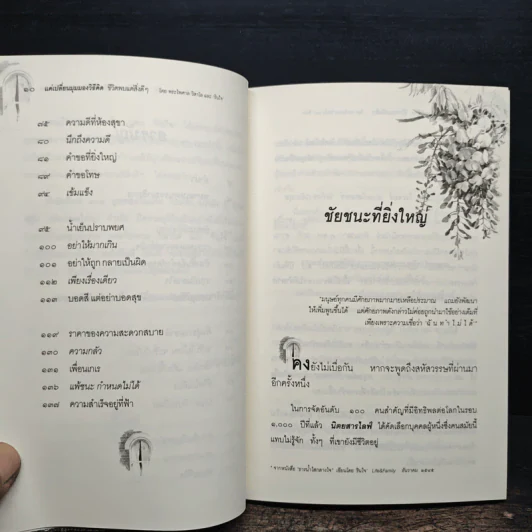 ๑๐ แค่เปลี่ยนมุมมองวิธีคิด ชีวิตพบแต่สิ่งดีๆ
๗๕ ความดีที่ห้องสุขา
๘๐ นึกถึงความดี
๘๑ คำขอที่ยิ่งใหญ่
๘๙ คำขอโทษ
๙๔ เข้มแข็ง
๙๕ น้ำเย็นปราบพยศ
๑๐๐ อย่าให้มากเกิน
๑๐๑ อย่าให้ถูก กลายเป็นผิด
๑๑๒ เพียงเรื่องเดียว
๑๑๓ บอดสี แต่อย่าบอดสุข
๑๑๙ ราคาของความสะดวกสบาย
๑๓๐ ความกลัว
๑๓๑ เพื่อนเกเร
๑๓๖ แพ้ชนะ กำหนดไม่ได้
๑๓๗ ความสำเร็จอยู่ที่ฟ้า
ชัยชนะที่ยิ่งใหญ่
"มนุษย์ทุกคนมีศักยภาพมากมายเหลือประมาณ แถมยังพัฒนา
ให้เพิ่มพูนขึ้นได้ แต่ศักยภาพดังกล่าวไม่ค่อยถูกนำมาใช้อย่างเต็มที่
เพียงเพราะความเชื่อว่า ฉันทำไม่ได้"
คงยังไม่เบื่อกัน หากจะพูดถึงสหัสวรรษที่ผ่านมา
อีกครั้งหนึ่ง
ในการจัดอันดับ ๑๐๐ คนสำคัญที่มีอิทธิพลต่อโลกในรอบ
๑,๐๐๐ ปีที่แล้ว นิตยสารไลฟ์ ได้คัดเลือกบุคคลผู้หนึ่งซึ่งคนสมัยนี้
แทบไม่รู้จัก ทั้งๆ ที่เขายังมีชีวิตอยู่